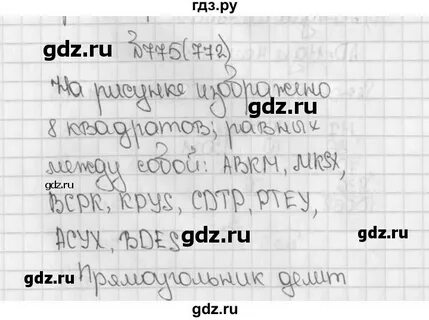 гдз.ру
gdz.ru №775(772)
На рисунке изображено
gdz.ru
8 квадратов, равных
между собой: ABKM, MKSX,
gdz.ru
BCPK, KPYS, CDTP, PTEY,
ACYX, BDES gdz.ru gdz.ru
Прямоугольник делит
gdz.ru